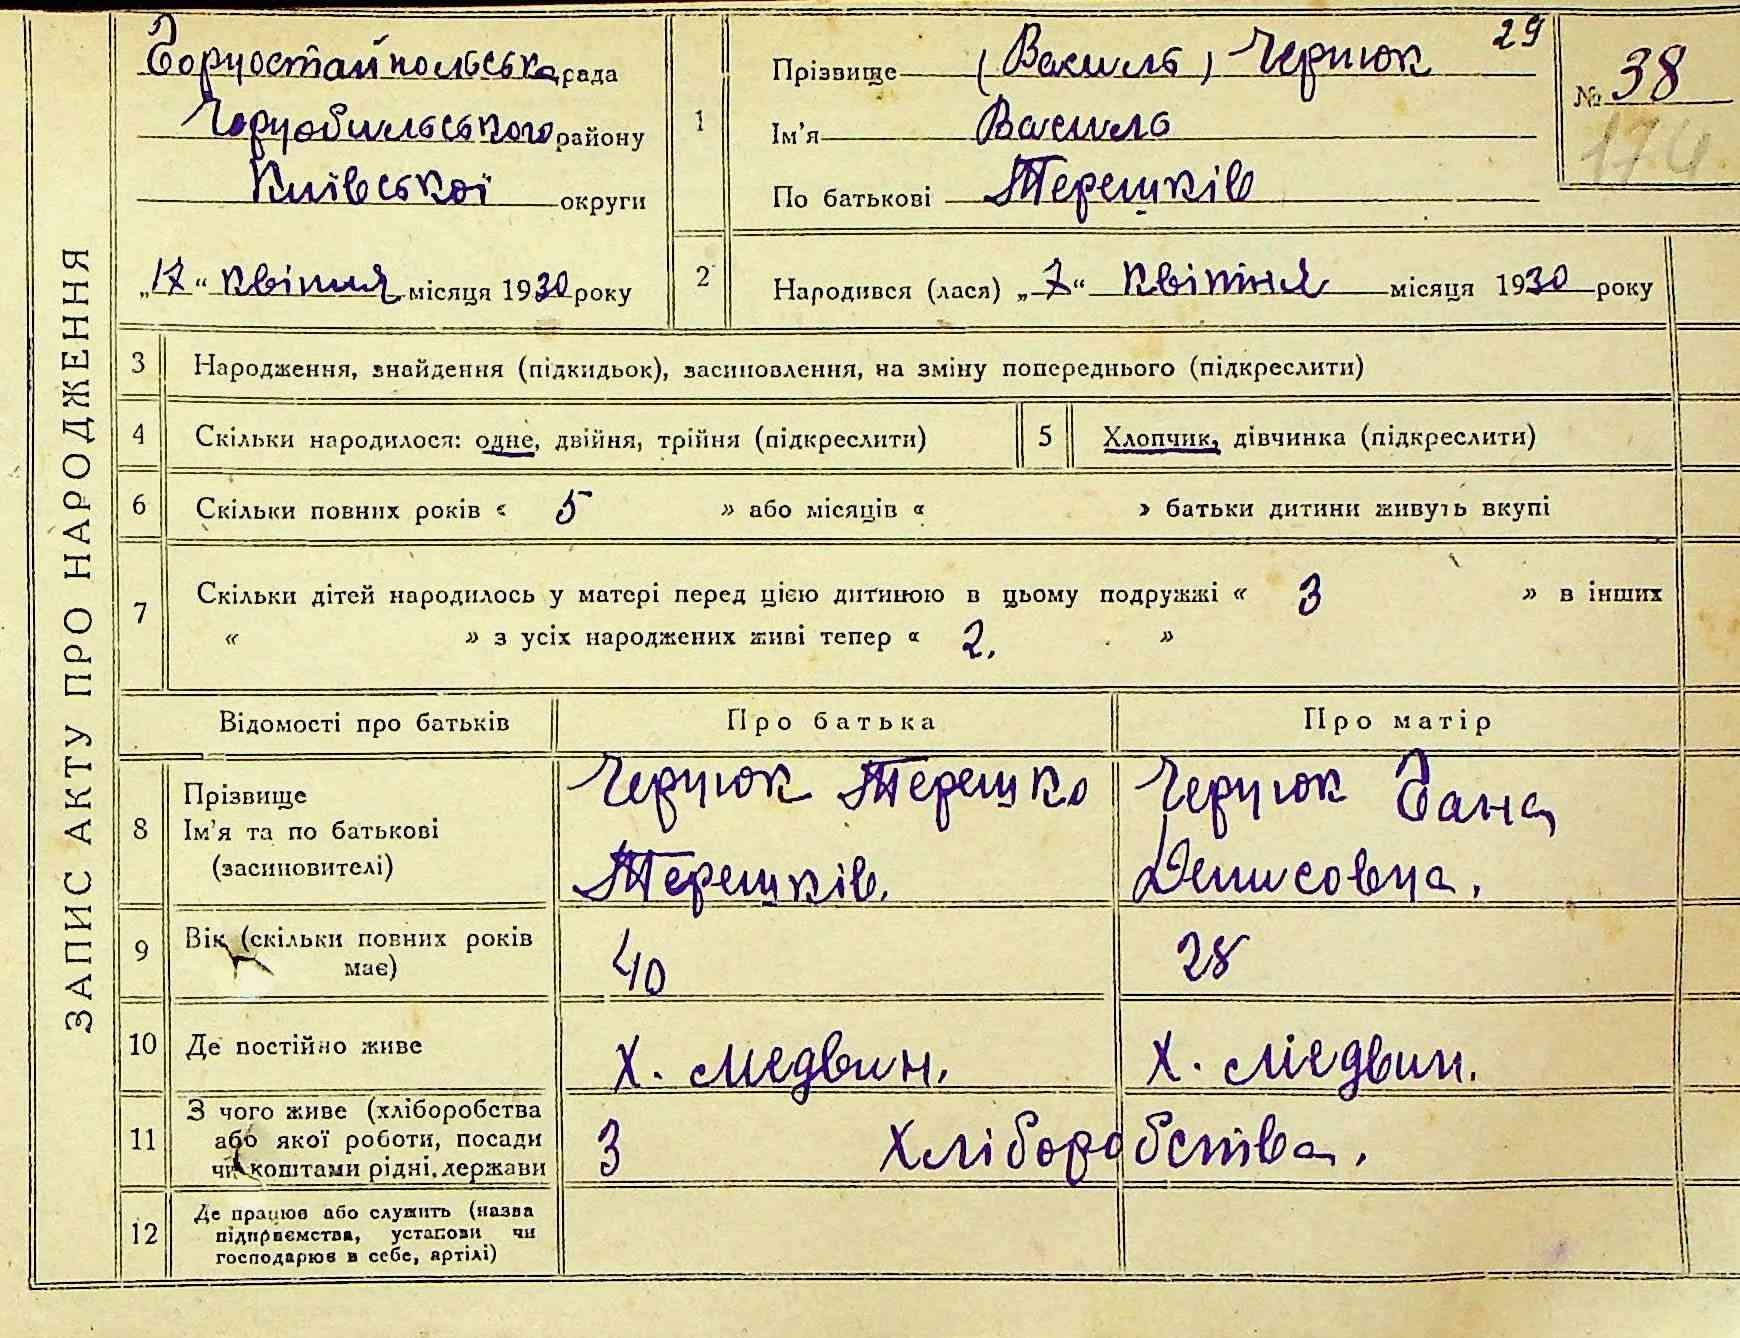 ЗАПИС АКТУ ПРО НАРОДЖЕННЯ
Горностайпольська рада
Чорнобильського району
Київської округи
„17“ квітня місяця 1930 року
1
Прізвище (Василь) Чернюк
Ім'я Василь
По батькові Терешків
29
№ 38
174
2
Народився (лася) „7“ Квітня місяця 1930 року
3 Народження, знайдення (підкидьок), засиновлення, на зміну попереднього (підкреслити)
4 Скільки народилося: одне, двійня, трійня (підкреслити)
5 Хлопчик, дівчинка (підкреслити)
6 Скільки повних років « 5 » або місяців « » батьки дитини живуть вкупі
7 Скільки дітей народилось у матері перед цією дитиною в цьому подружжі « 3 » в інших
« » з усіх народжених живі тепер « 2. »
Відомості про батьків Про батька Про матір
8
Прізвище
Ім'я та по батькові
(засиновителі)
Чернюк Терешко
Терешків.
Чернюк Гана
Денисовна.
9
Вік (скільки повних років
має)
40
28
10 Де постійно живе
Х. Медвин.
Х. Медвин.
11
З чого живе (хліборобства
або якої роботи, посади
чи коштами рідні, держави
З Хліборобства.
12
Де працює або служить (назва
підприємства, установи чи
господарює в себе, артілі)